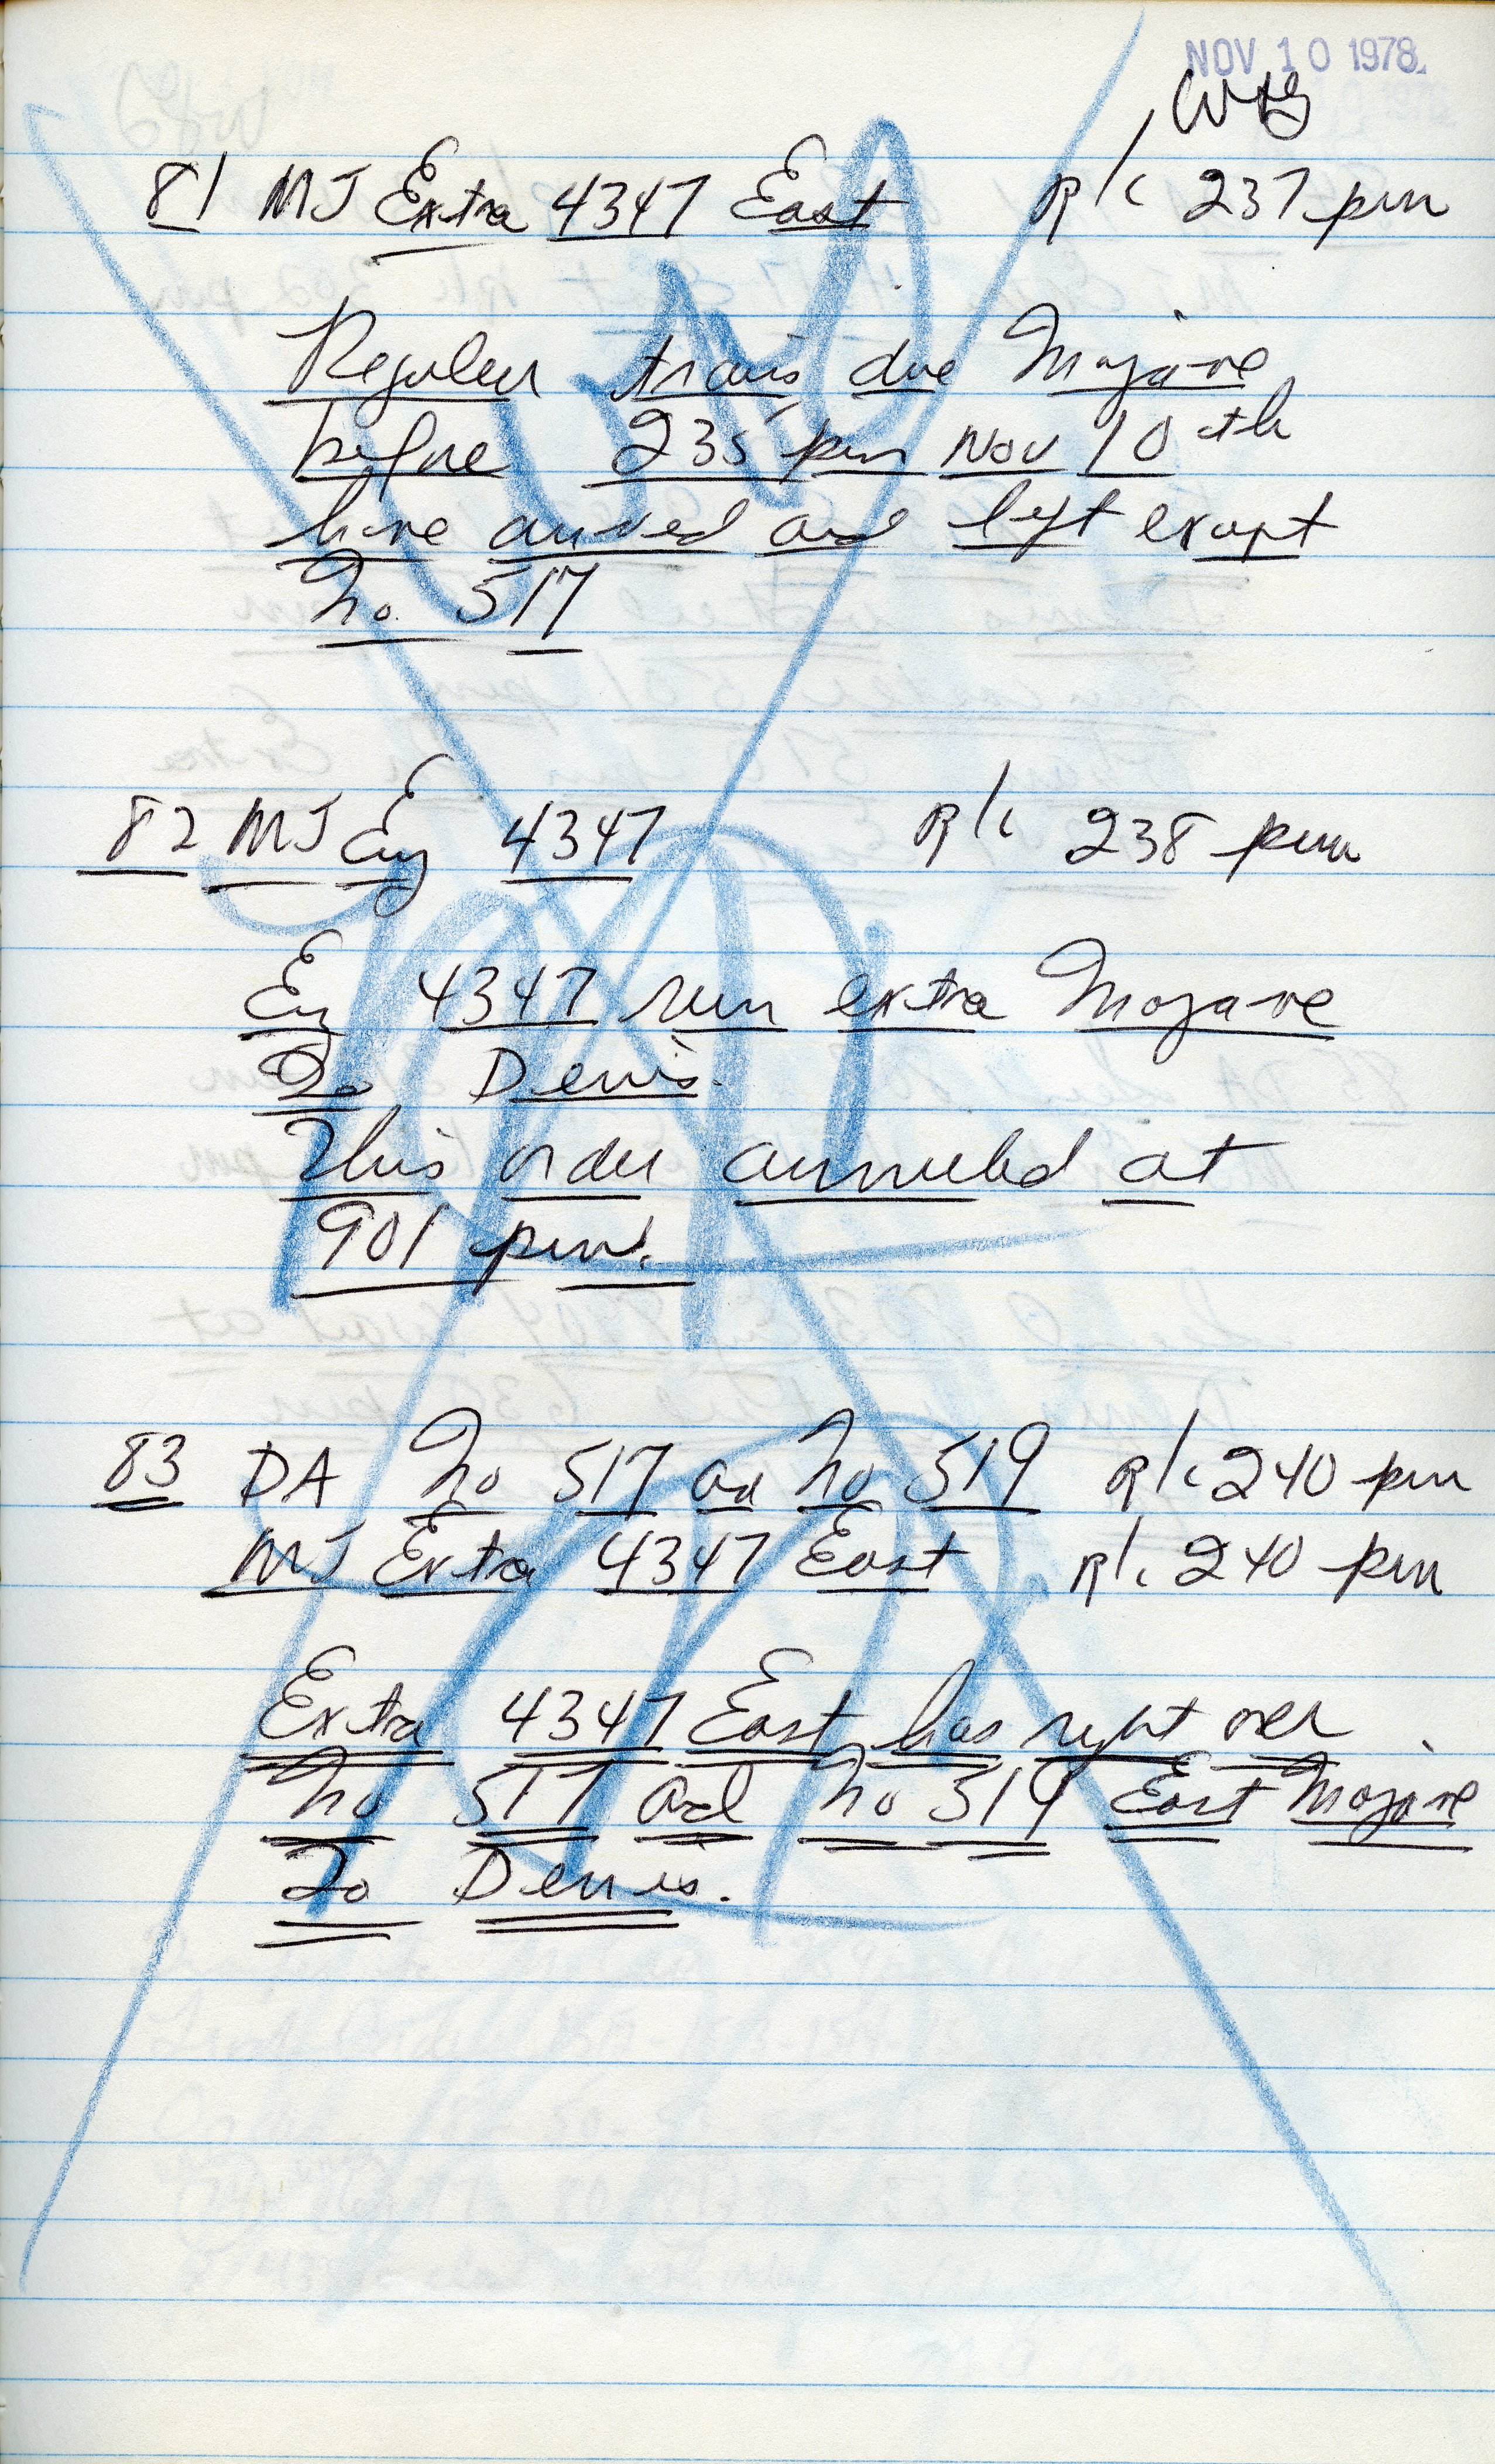 NOV 10 1978
81 MJ Extra 4347 East R/c 237 pm
Regular trains due Mojave
before 235 pm Nov 10th
have arrived and left except
No. 517
82 MJ Eng 4347 R/c 238 pm
Eng 4347 run extra Mojave
To Denis.
This order annulled at
901 pm.
83 DA No 517 and No 519 R/c 240 pm
MJ Extra 4347 East R/c 240 pm
Extra 4347 East has right over
No 517 and No 519 East Mojave
To Denis.